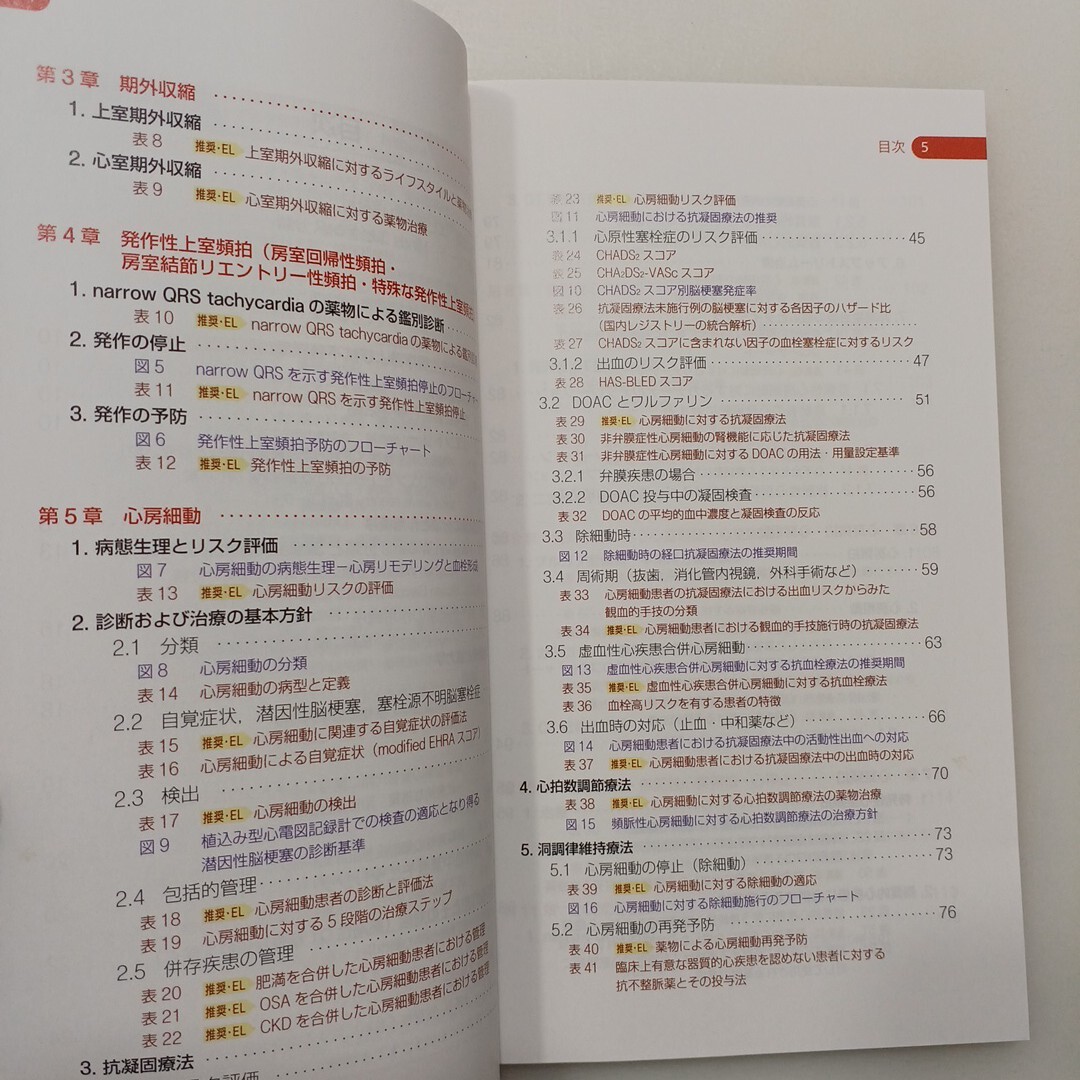 第3章 期外収縮 ‥‥‥‥‥‥‥‥
1. 上室期外収縮 ‥‥‥‥‥‥‥‥
表8 推奨・EL 上室期外収縮に対するライフスタイルと薬物
2. 心室期外収縮 ‥‥‥‥‥‥‥‥
表9 推奨・EL 心室期外収縮に対する薬物治療
第4章 発作性上室頻拍（房室回帰性頻拍・
房室結節リエントリー性頻拍・特殊な発作性上室頻拍
1. narrow QRS tachycardiaの薬物による鑑別診断 ‥‥
表10 推奨・EL narrow QRS tachycardiaの薬物による鑑別
2. 発作の停止 ‥‥‥‥‥‥‥‥
図5 narrow QRSを示す発作性上室頻拍停止のフローチャ
表11 推奨・EL narrow QRSを示す発作性上室頻拍停止
3. 発作の予防 ‥‥‥‥‥‥‥‥
図6 発作性上室頻拍予防のフローチャート
表12 推奨・EL 発作性上室頻拍の予防
第5章 心房細動 ‥‥‥‥‥‥‥‥
1. 病態生理とリスク評価 ‥‥‥‥‥‥
図7 心房細動の病態生理－心房リモデリングと血栓形成
表13 推奨・EL 心房細動リスクの評価
2. 診断および治療の基本方針 ‥‥‥‥‥‥
2.1 分類 ‥‥‥‥‥‥‥‥
図8 心房細動の分類
表14 心房細動の病型と定義
2.2 自覚症状，潜因性脳梗塞，塞栓源不明脳塞栓症
表15 推奨・EL 心房細動に関連する自覚症状の評価法
表16 心房細動による自覚症状（modified EHRAスコア）
2.3 検出 ‥‥‥‥‥‥‥‥
表17 推奨・EL 心房細動の検出
図9 植込み型心電図記録計での検査の適応となり得る
潜因性脳梗塞の診断基準
2.4 包括的管理 ‥‥‥‥‥‥‥‥
表18 推奨・EL 心房細動患者の診断と評価法
表19 心房細動に対する5段階の治療ステップ
2.5 併存疾患の管理 ‥‥‥‥‥‥
表20 推奨・EL 肥満を合併した心房細動患者における管理
表21 推奨・EL OSAを合併した心房細動患者における管理
表22 推奨・EL CKDを合併した心房細動患者における管理
3. 抗凝固療法 ‥‥‥‥‥‥‥‥
ク評価
目次 5
表23 推奨・EL 心房細動リスク評価
図11 心房細動における抗凝固療法の推奨
3.1.1 心原性塞栓症のリスク評価 ‥‥‥‥‥‥ 45
表24 CHADS₂ スコア
表25 CHA₂DS₂-VASc スコア
図10 CHADS₂ スコア別脳梗塞発症率
表26 抗凝固療法未施行例の脳梗塞に対する各因子のハザード比
（国内レジストリーの統合解析）‥‥‥‥‥‥
表27 CHADS₂ スコアに含まれない因子の血栓塞栓症に対するリスク
3.1.2 出血のリスク評価 ‥‥‥‥‥‥ 47
表28 HAS-BLED スコア
3.2 DOAC とワルファリン ‥‥‥‥‥‥ 51
表29 推奨・EL 心房細動に対する抗凝固療法
表30 非弁膜症性心房細動の腎機能に応じた抗凝固療法
表31 非弁膜症性心房細動に対するDOACの用法・用量設定基準
3.2.1 弁膜疾患の場合 ‥‥‥‥‥‥ 56
3.2.2 DOAC 投与中の凝固検査 ‥‥‥‥‥‥ 56
表32 DOACの平均的血中濃度と凝固検査の反応
3.3 除細動時 ‥‥‥‥‥‥ 58
図12 除細動時の経口抗凝固療法の推奨期間
3.4 周術期（抜歯，消化管内視鏡，外科手術など）‥‥‥‥ 59
表33 心房細動患者の抗凝固療法における出血リスクからみた
観血的手技の分類
表34 推奨・EL 心房細動患者における観血的手技施行時の抗凝固療法
3.5 虚血性心疾患合併心房細動 ‥‥‥‥‥‥ 63
図13 虚血性心疾患合併心房細動に対する抗血栓療法の推奨期間
表35 推奨・EL 虚血性心疾患合併心房細動に対する抗血栓療法
表36 血栓高リスクを有する患者の特徴
3.6 出血時の対応（止血・中和薬など）‥‥‥‥‥‥ 66
図14 心房細動患者における抗凝固療法中の活動性出血への対応
表37 推奨・EL 心房細動患者における抗凝固療法中の出血時の対応
4. 心拍数調節療法 ‥‥‥‥‥‥ 70
表38 推奨・EL 心房細動に対する心拍数調節療法の薬物治療
図15 頻脈性心房細動に対する心拍数調節療法の治療方針
5. 洞調律維持療法 ‥‥‥‥‥‥ 73
5.1 心房細動の停止（除細動）‥‥‥‥‥‥ 73
表39 推奨・EL 心房細動に対する除細動の適応
図16 心房細動に対する除細動施行のフローチャート
5.2 心房細動の再発予防 ‥‥‥‥‥‥ 76
表40 推奨・EL 薬物による心房細動再発予防
表41 臨床上有意な器質的心疾患を認めない患者に対する
抗不整脈薬とその投与法